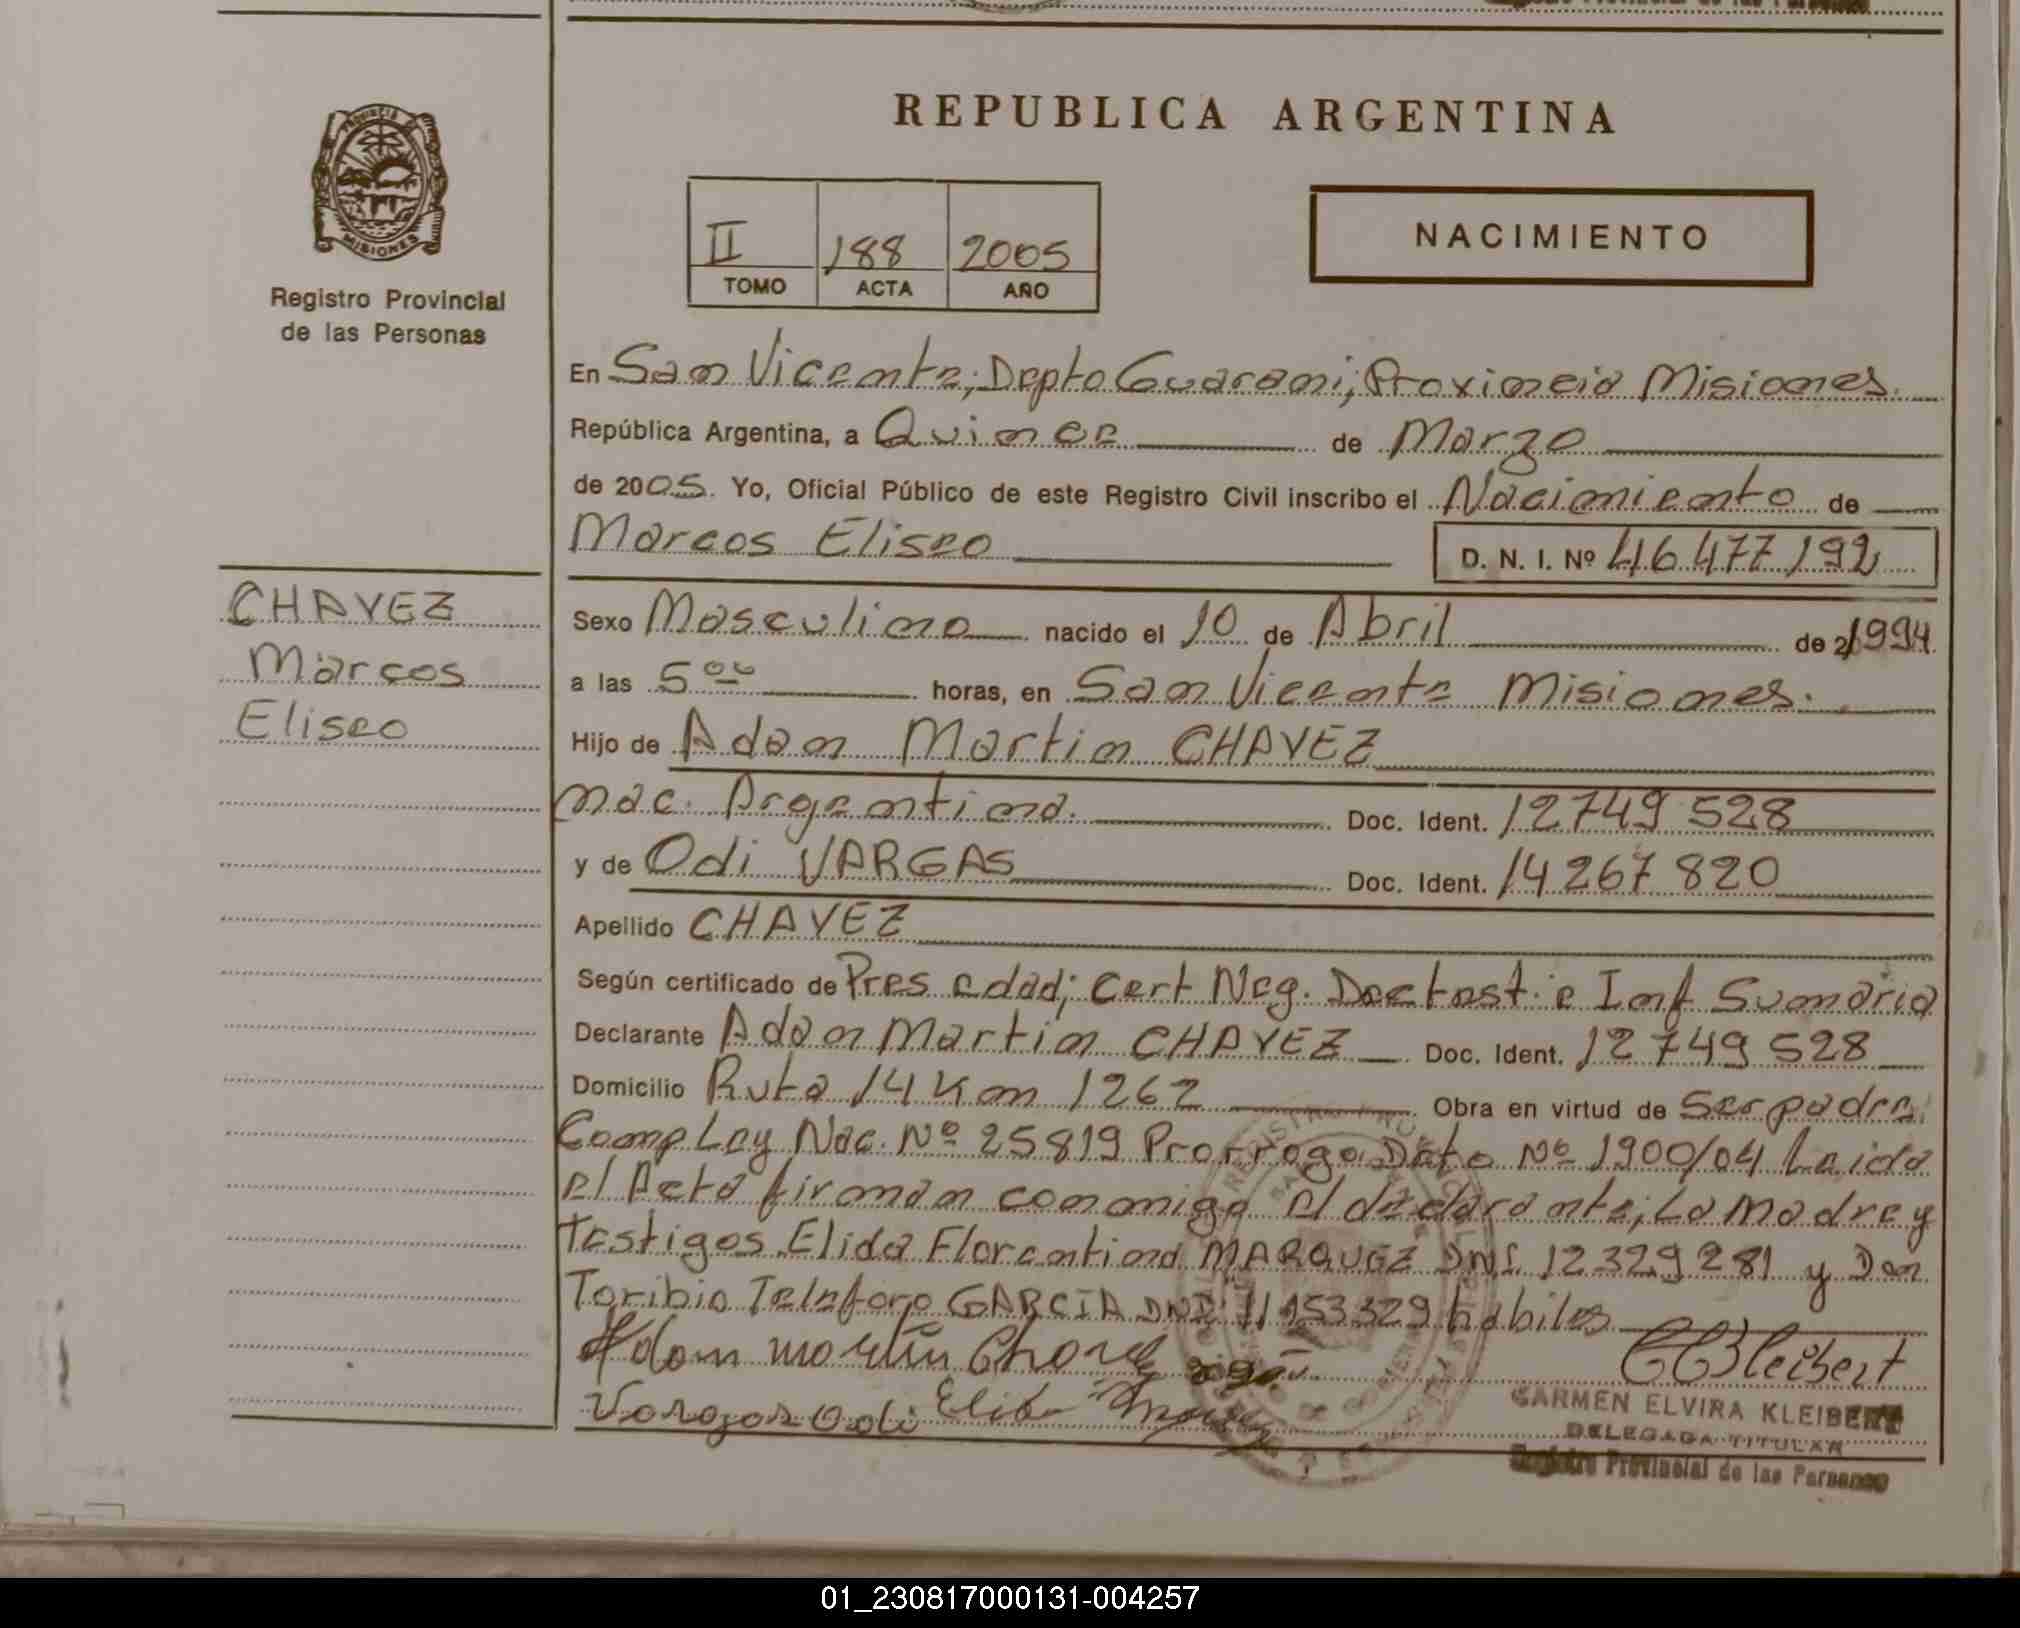 REPUBLICA ARGENTINA
PROVINCIA DE
MISIONES
Registro Provincial
de las Personas
II 188 2005
TOMO ACTA AÑO
NACIMIENTO
En San Vicente, Depto Guarani; Provincia Misiones.
República Argentina, a Quince de Marzo
de 2005. Yo, Oficial Público de este Registro Civil inscribo el Nacimiento de
Marcos Eliseo
D. N. I. Nº 46.477.192
CHAVEZ
Marcos
Eliseo
Sexo Masculino nacido el 10 de Abril de 1994
a las 5 00 horas, en San Vicente Misiones.
Hijo de Adan Martin CHAVEZ
nac. Argentina. Doc. Ident. 12749 528
y de Odi VARGAS Doc. Ident. 14267 820
Apellido CHAVEZ
Según certificado de Pres edad; Cert Neg. Doctest. e Inf Sumaria
Declarante Adan Martin CHAVEZ Doc. Ident. 12749 528
Domicilio Ruta 14 Km 1262 Obra en virtud de Ser padre.
Comp Ley Nac. Nº 25819 Prorroga Dcto Nº 1900/04 Leida
el Acta firman conmigo el declarante, La Madre y
Testigos Elida Florentina MARQUEZ DNI. 12329281 y Don
Toribio Telesforo GARCIA DNI 11153329 habiles
Adam martin Chavez
CEKleibert
Vargas Odi Elida
CARMEN ELVIRA KLEIBERT
DELEGADA TITULAR
Registro Provincial de las Personas
01_230817000131-004257